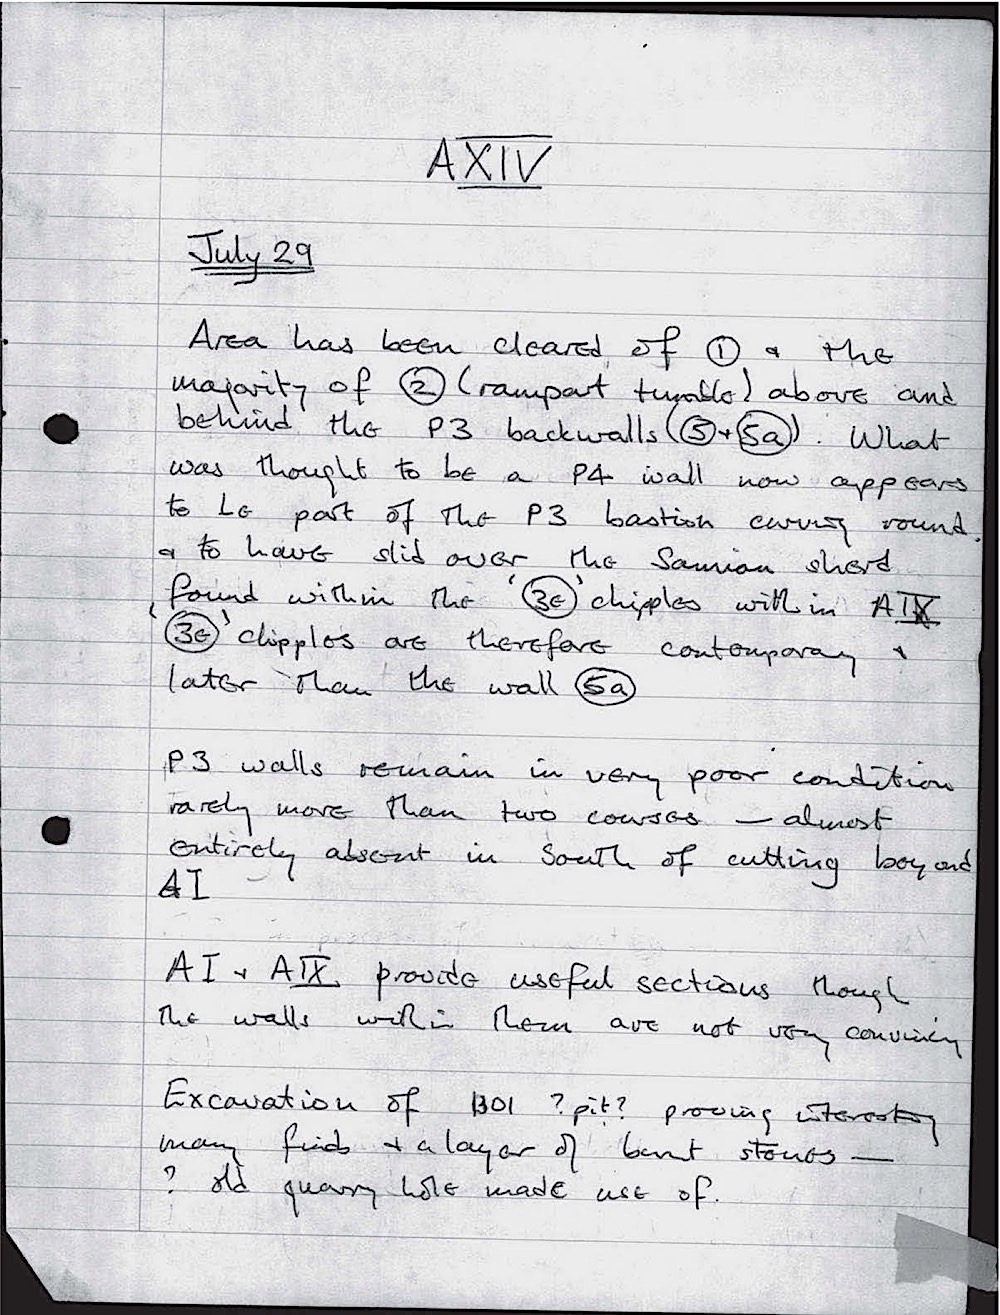 AXIV
July 29
Area has been cleared of ① & the
majority of ② (rampart tumble) above and
behind the P3 backwalls (⑤ + 5a). What
was thought to be a P4 wall now appears
to be part of the P3 bastion curving round.
& to have slid over the Samian sherd
found within the '3e' chipples within AIX
'3e' chipples are therefore contemporary &
later than the wall 5a
P3 walls remain in very poor condition
rarely more than two courses — almost
entirely absent in South of cutting beyond
AI
AI + AIX provide useful sections though
the walls within them are not very convincing
Excavation of 1301 ?pit? proving interesting
many finds + a layer of burnt stones —
? old quarry hole made use of.